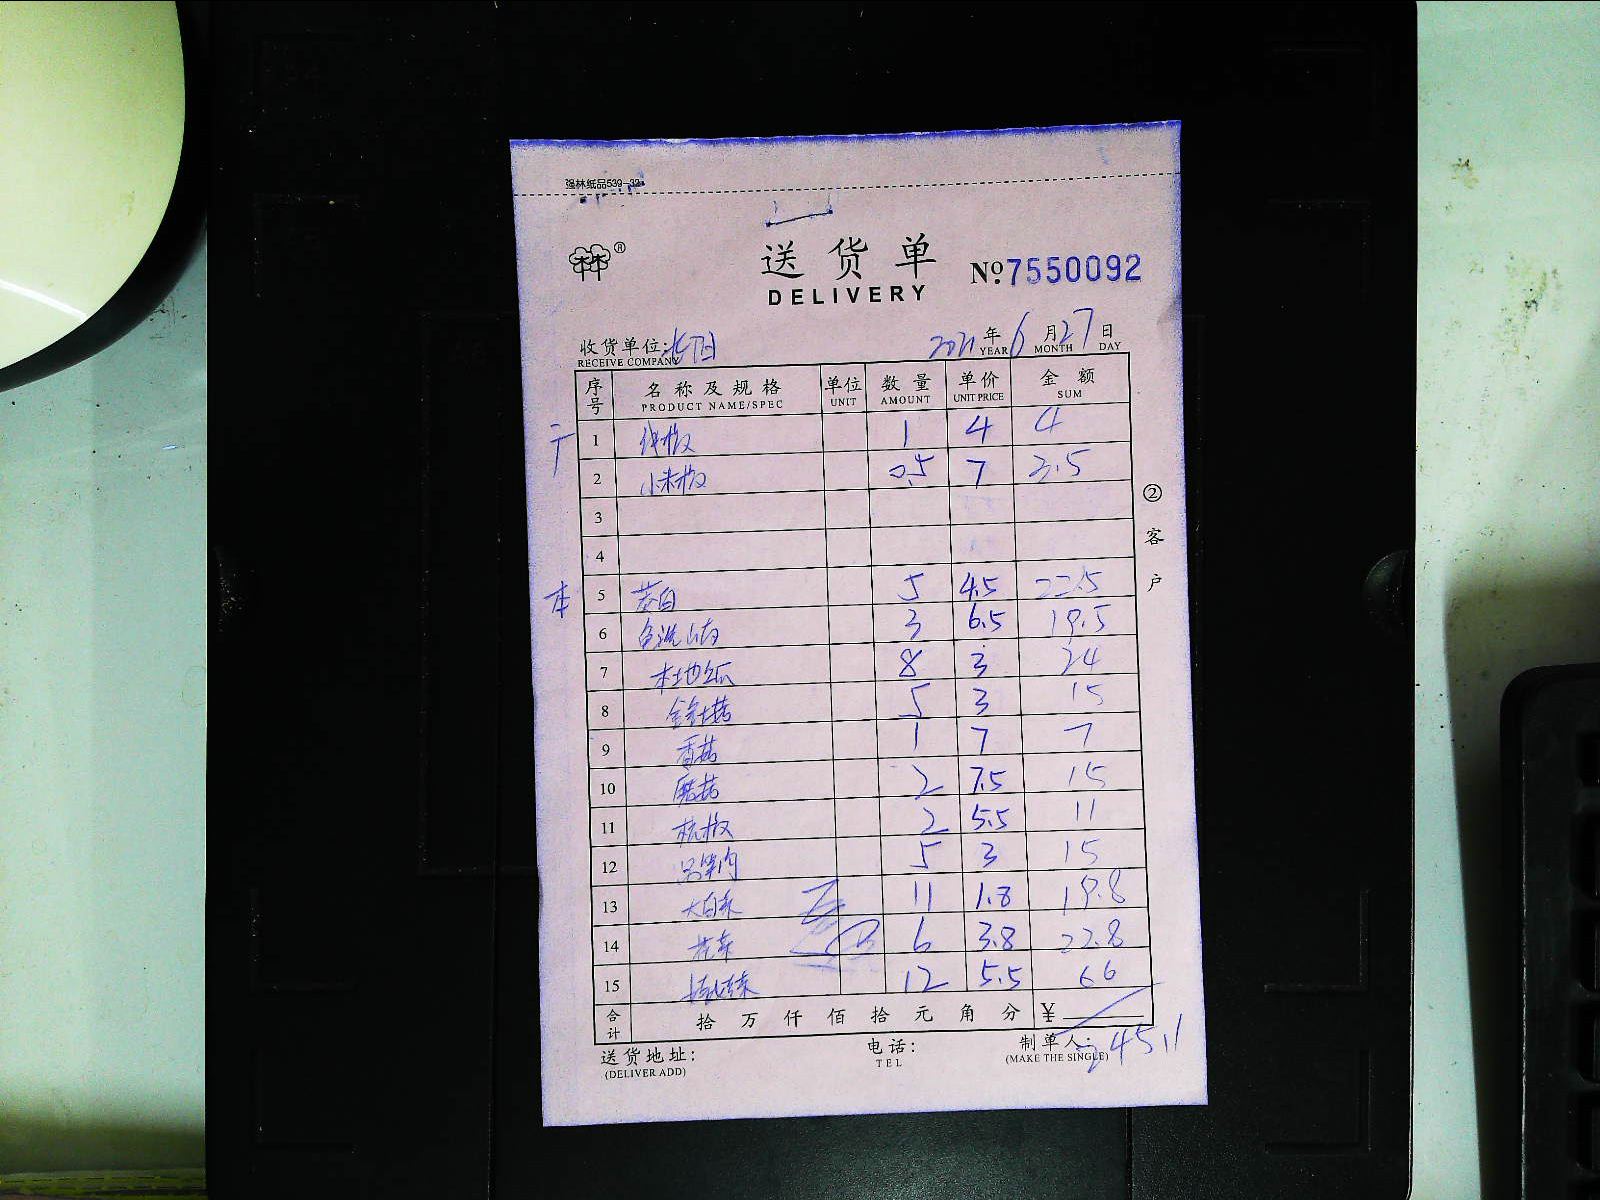 强林纸品539-32
林林®
送货单
DELIVERY
№ 7550092
收货单位:
RECEIVE COMPANY
2021 年 6 月 27 日
YEAR MONTH DAY
序号 名称及规格 单位 数量 单价 金额
PRODUCT NAME/SPEC UNIT AMOUNT UNIT PRICE SUM
1 线椒 1 4 4
2 小米椒 0.5 7 3.5
3
4
本 5 茭白 5 4.5 22.5
6 3 6.5 19.5
7 本地 8 3 24
8 金针菇 5 3 15
9 香菇 1 7 7
10 蘑菇 2 7.5 15
11 杭椒 2 5.5 11
12 5 3 15
13 大白菜 11 1.8 19.8
14 花菜 6 3.8 22.8
15 12 5.5 66
合计 拾 万 仟 佰 拾 元 角 分 ¥
245.1
送货地址: 电话: 制单人:
(DELIVER ADD) TEL (MAKE THE SINGLE)
② 客户